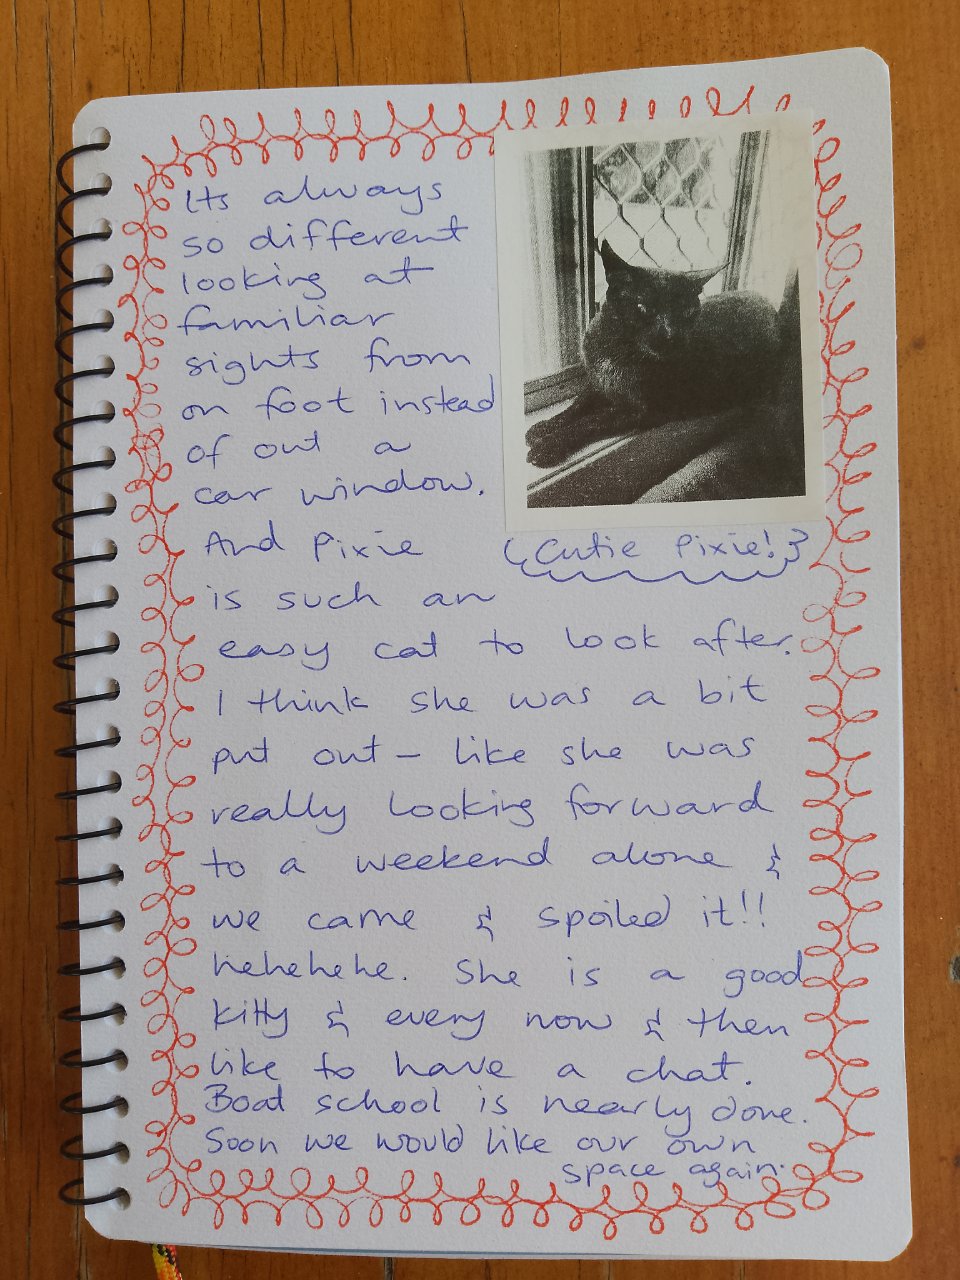 Its always
so different
looking at
familiar
sights from
on foot instead
of out a
car window.
And Pixie
{Cutie Pixie!}
is such an
easy cat to look after.
I think she was a bit
put out - like she was
really looking forward
to a weekend alone &
we came & spoiled it!!
hehehehe. She is a good
kitty & every now & then
like to have a chat.
Boat school is nearly done.
Soon we would like our own
space again.